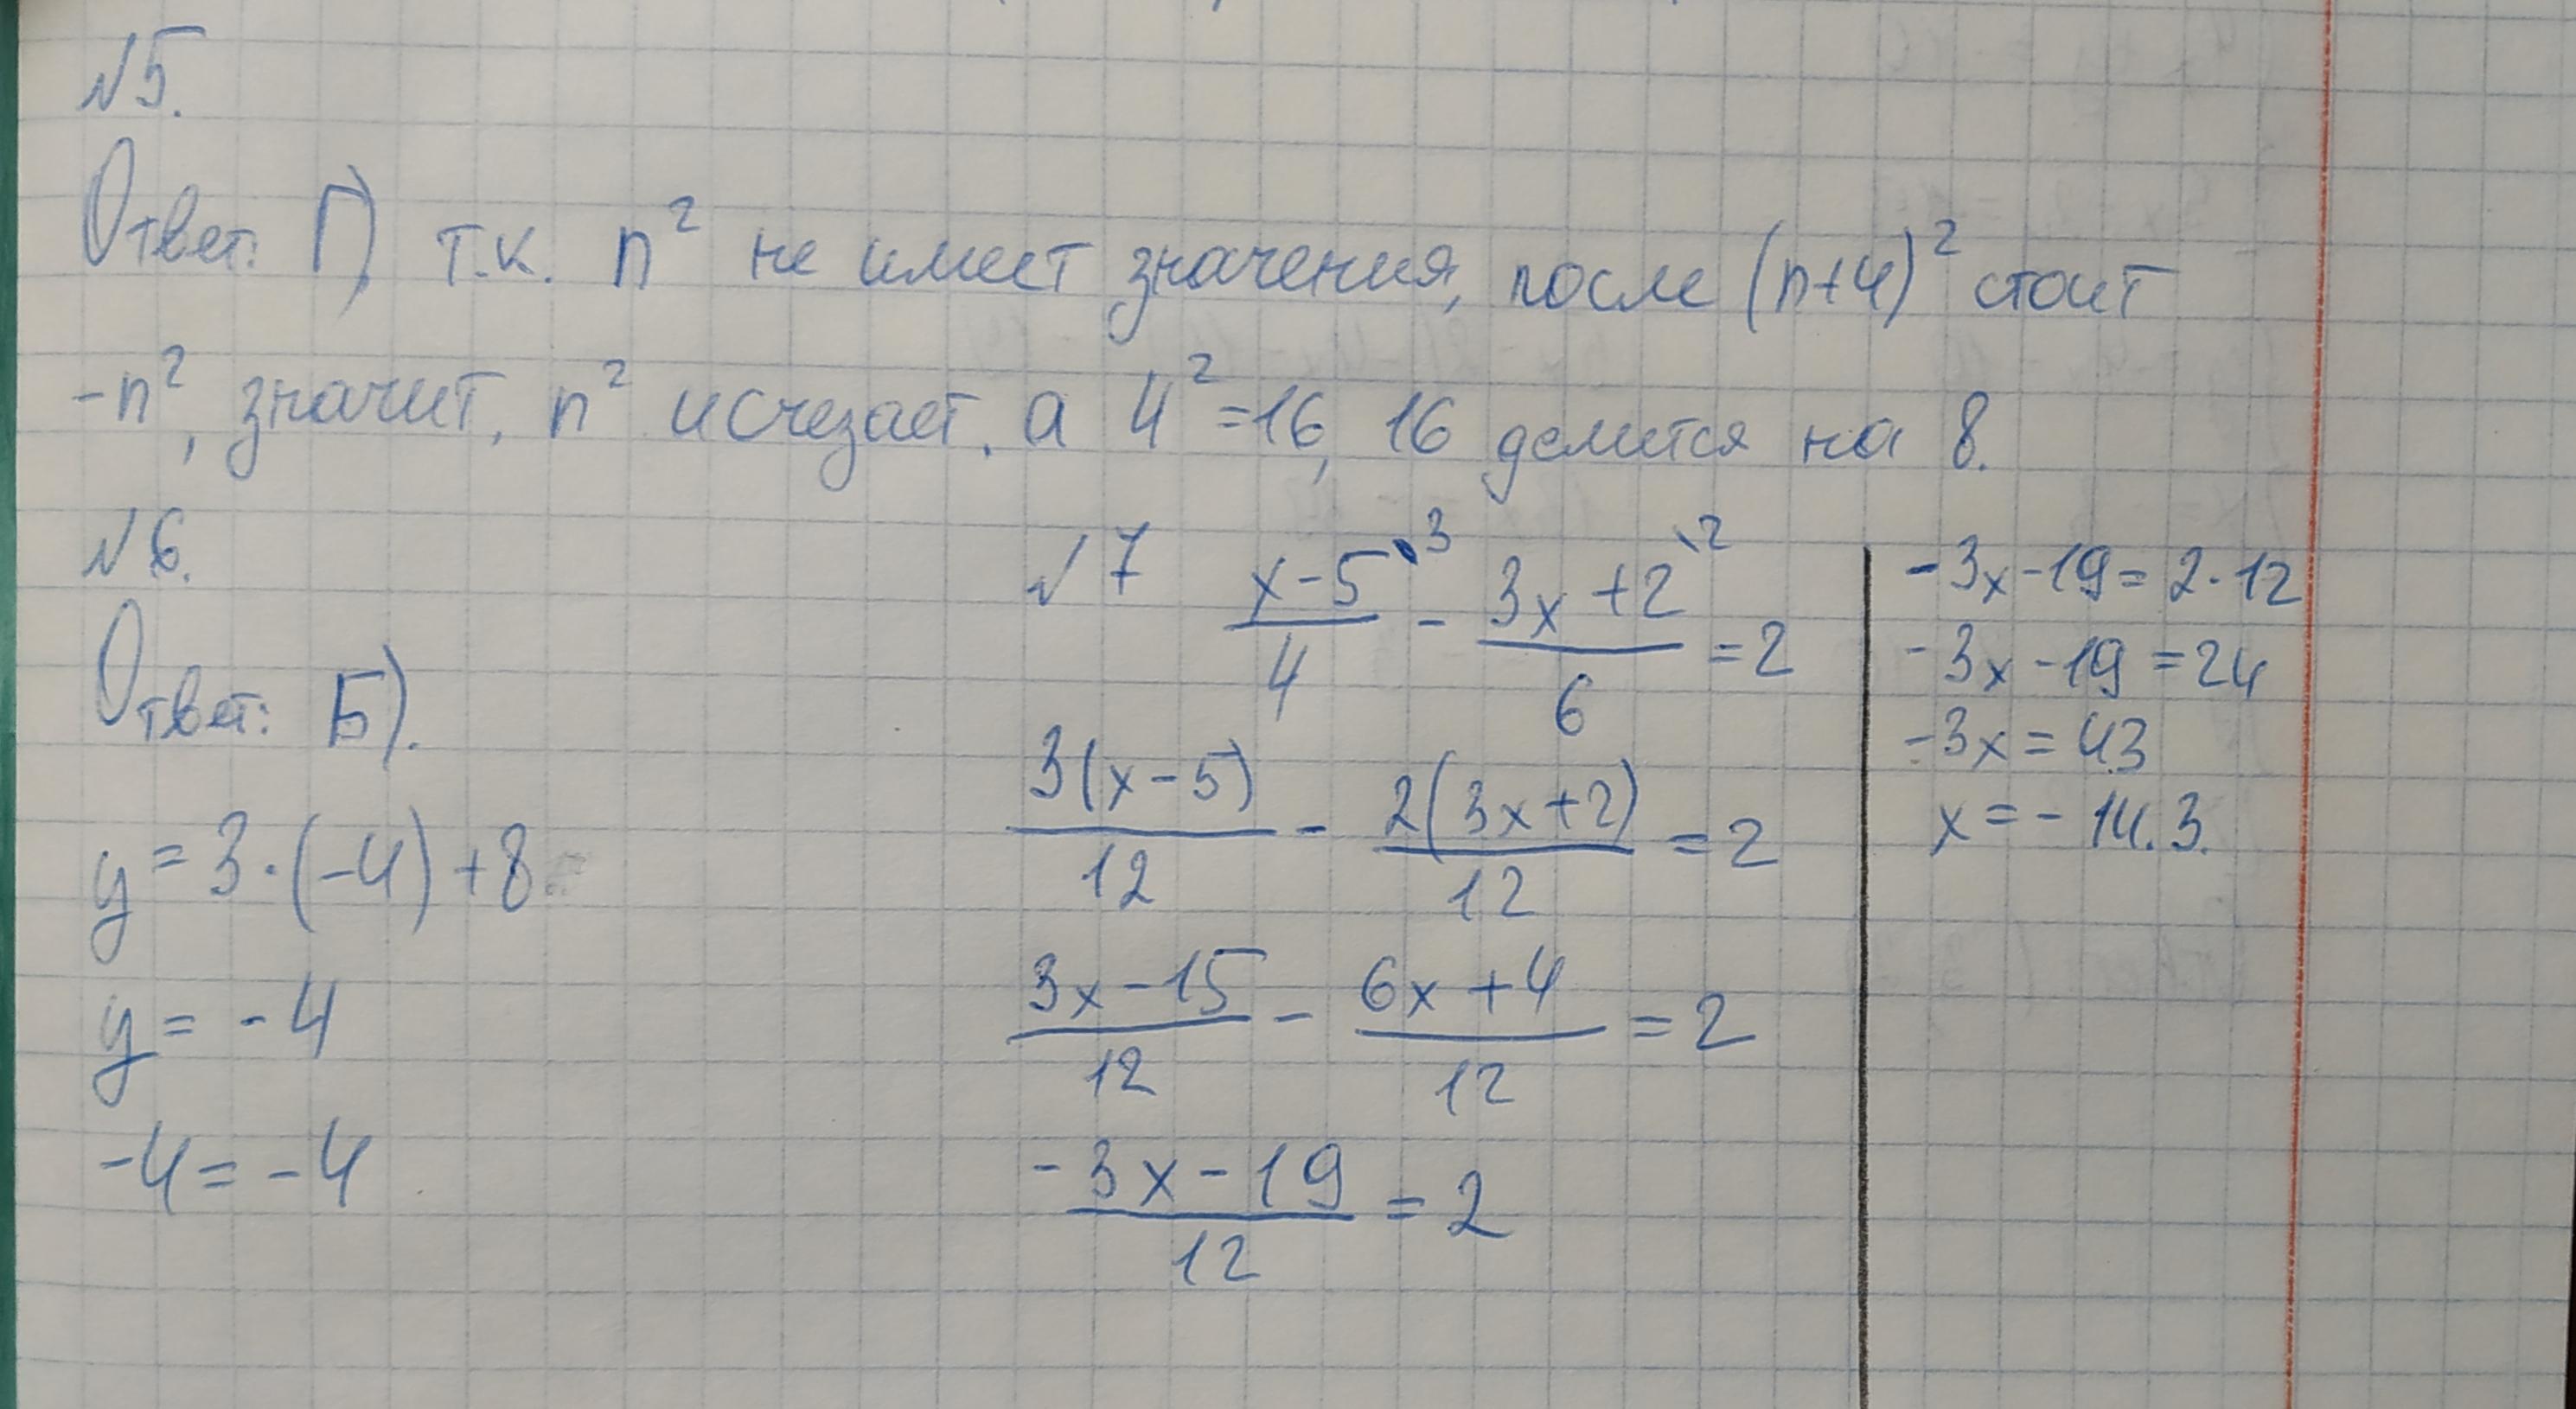 №5.
Ответ: Г), т.к. n² не имеет значения, после (n+4)² стоит
-n², значит, n² исчезает, а 4²=16, 16 делится на 8.
№6.
Ответ: Б).
y = 3·(-4)+8
y = -4
-4 = -4
№7 (x-5)\3 / 4 - (3x+2)\2 / 6 = 2
3(x-5)/12 - 2(3x+2)/12 = 2
(3x-15)/12 - (6x+4)/12 = 2
(-3x-19)/12 = 2
-3x-19 = 2·12
-3x-19 = 24
-3x = 43
x = -14.3.